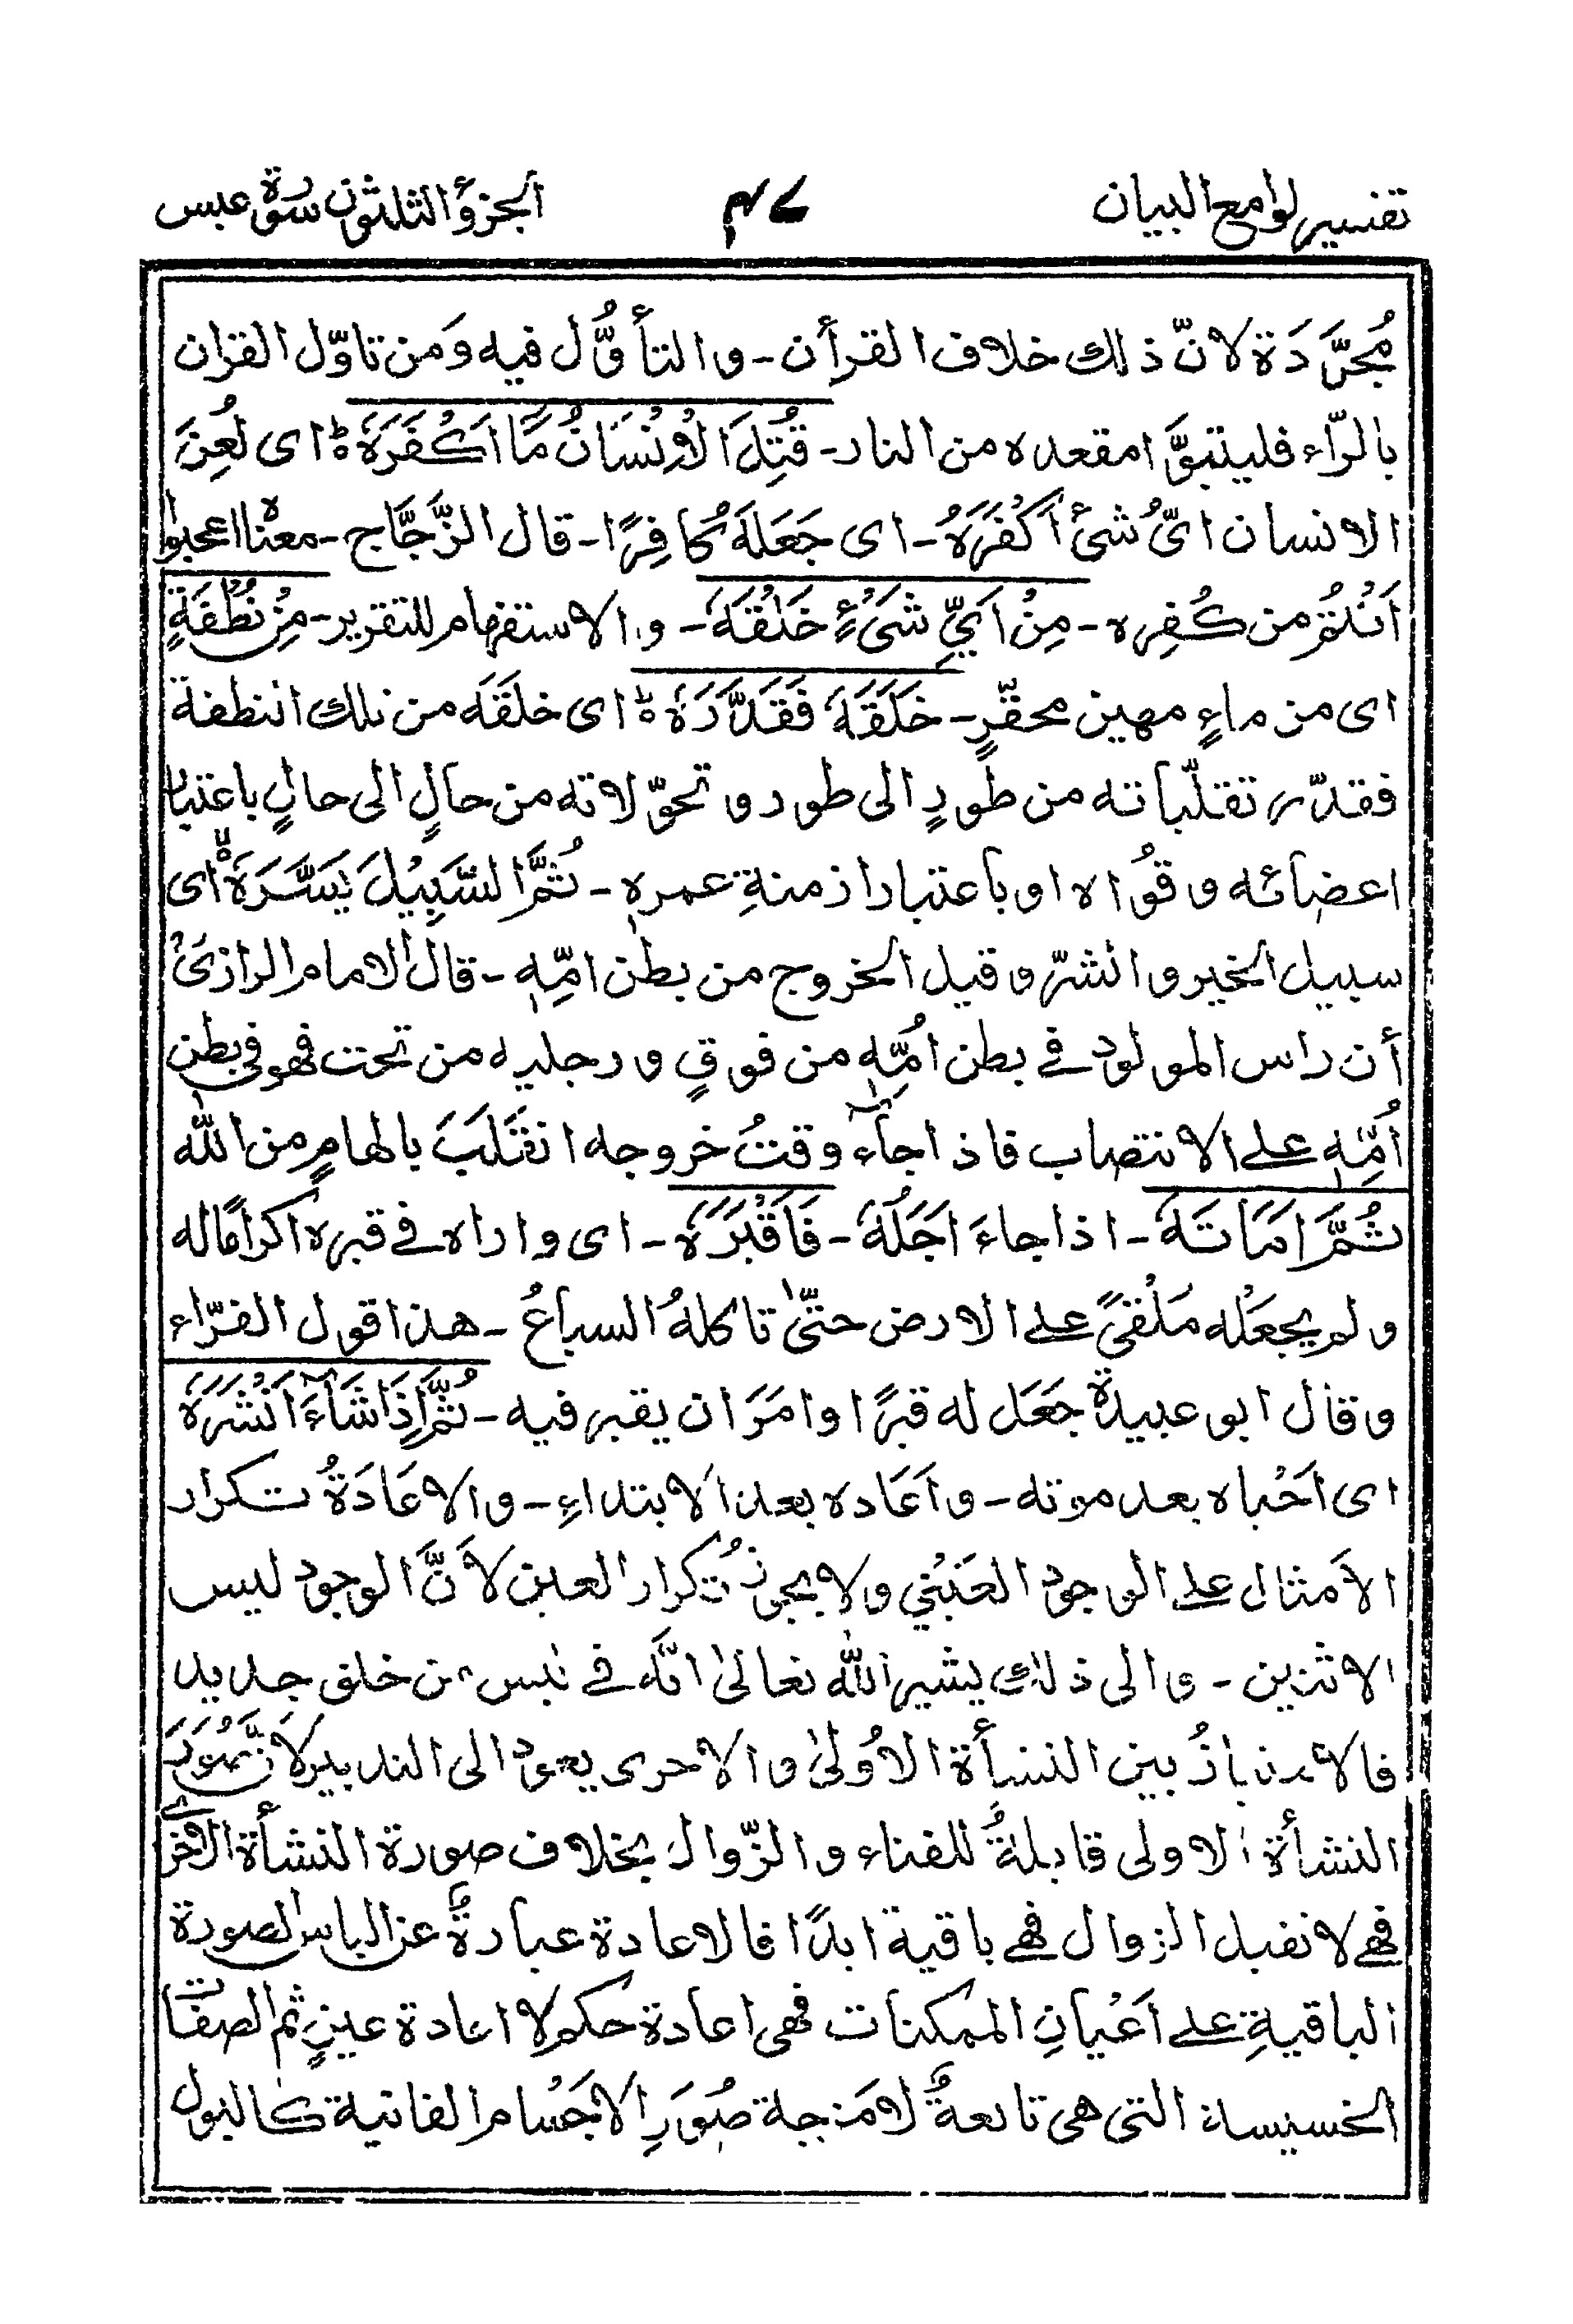 تفسير لوامع البيان ۴۷ الجزؤ الثلثون سورة عبس
مُجرَّدَة لانّ ذلك خلاف القرأن - والتأوُّل فيه وَمن تاوّل القران
بالرّاء فليتبوَّا مقعده من النار - قُتِلَ الْاِنْسَانُ مَا اَكْفَرَهٗ ؕ اى لُعِنَ
الانسان اىُّ شئ اَكْفَرَهُ - اى جَعَلَهٗ كافِرًا - قال الزّجَّاج - معناه اعجبوا
اَنْتُمْ من كُفِره - مِنْ اَيِّ شَىْءٍ خَلَقَهٗ - والاستفهام للتقرير - مِنْ نُطْفَةٍ
اى من ماءٍ مهين محقّرٍ - خَلَقَهٗ فَقَدَّرَهٗ ؕ اى خلقَه من تلك النطفة
فقدّر تقلّباته من طورٍ الى طور و تحوّلاته من حالٍ الى حالٍ باعتبار
اعضائه و قُواه او باعتبار ازمنةِ عمرهٖ - ثُمَّ السَّبِيْلَ يَسَّرَهٗ اى
سبيل الخير و الشرّ و قيل الخروج من بطن امِّهٖ - قال الامام الرازىؒ
أن راس المولود في بطن اُمِّهٖ من فوقٍ و رجليه من تحت فهو في بطن
اُمِّهٖ على الانتصاب فاذا جاء وقتُ خروجه انقَلَبَ بالهامٍ من الله
ثُمَّ اَمَاتَهٗ - اذا جاءَ اَجَلُهٗ - فَاَقْبَرَهٗ - اى واراه في قبره اكرامًا له
و لم يجعَلْه مَلْقىً على الارض حتّىٰ تاكلهُ السباعُ - هذا قول الفرّاء
و قال ابو عبيدة جَعَل له قبرًا وامَرَ ان يقبر فيه - ثُمَّ اِذَا شَآءَ اَنْشَرَهٗ
اى اَحْياه بعد موته - و اَعَاده بعد الابتداءِ - و الاعَادَةُ تكرار
الاَمثال على الوجود العَيْنِي ولا يجوز تكرار العين لاَنَّ الوجود ليس
الاثنين - و الى ذلك يشير الله تعالىٰ انّه في لبس من خلق جديد
فالامتيازُ بين النشأة الاُولىٰ و الاخرى يعود الى التدبير لاَنَّ صُوَرَ
النشأة الاولى قابلةٌ للفناء و الزّوال بخلاف صورة النشأة الاخرى
فهى لا تقبل الزوال فهى باقية ابدًا فالاعادة عبارةٌ عن الباس الصورة
الباقيةِ على اَعْيانِ الممكنات فهى اعادة حكم لا اعادة عينٍ ثم الصفات
الخسيسة التى هى تابعةٌ لامزجة صُوَرِ الاجْسام الفانية كالبول